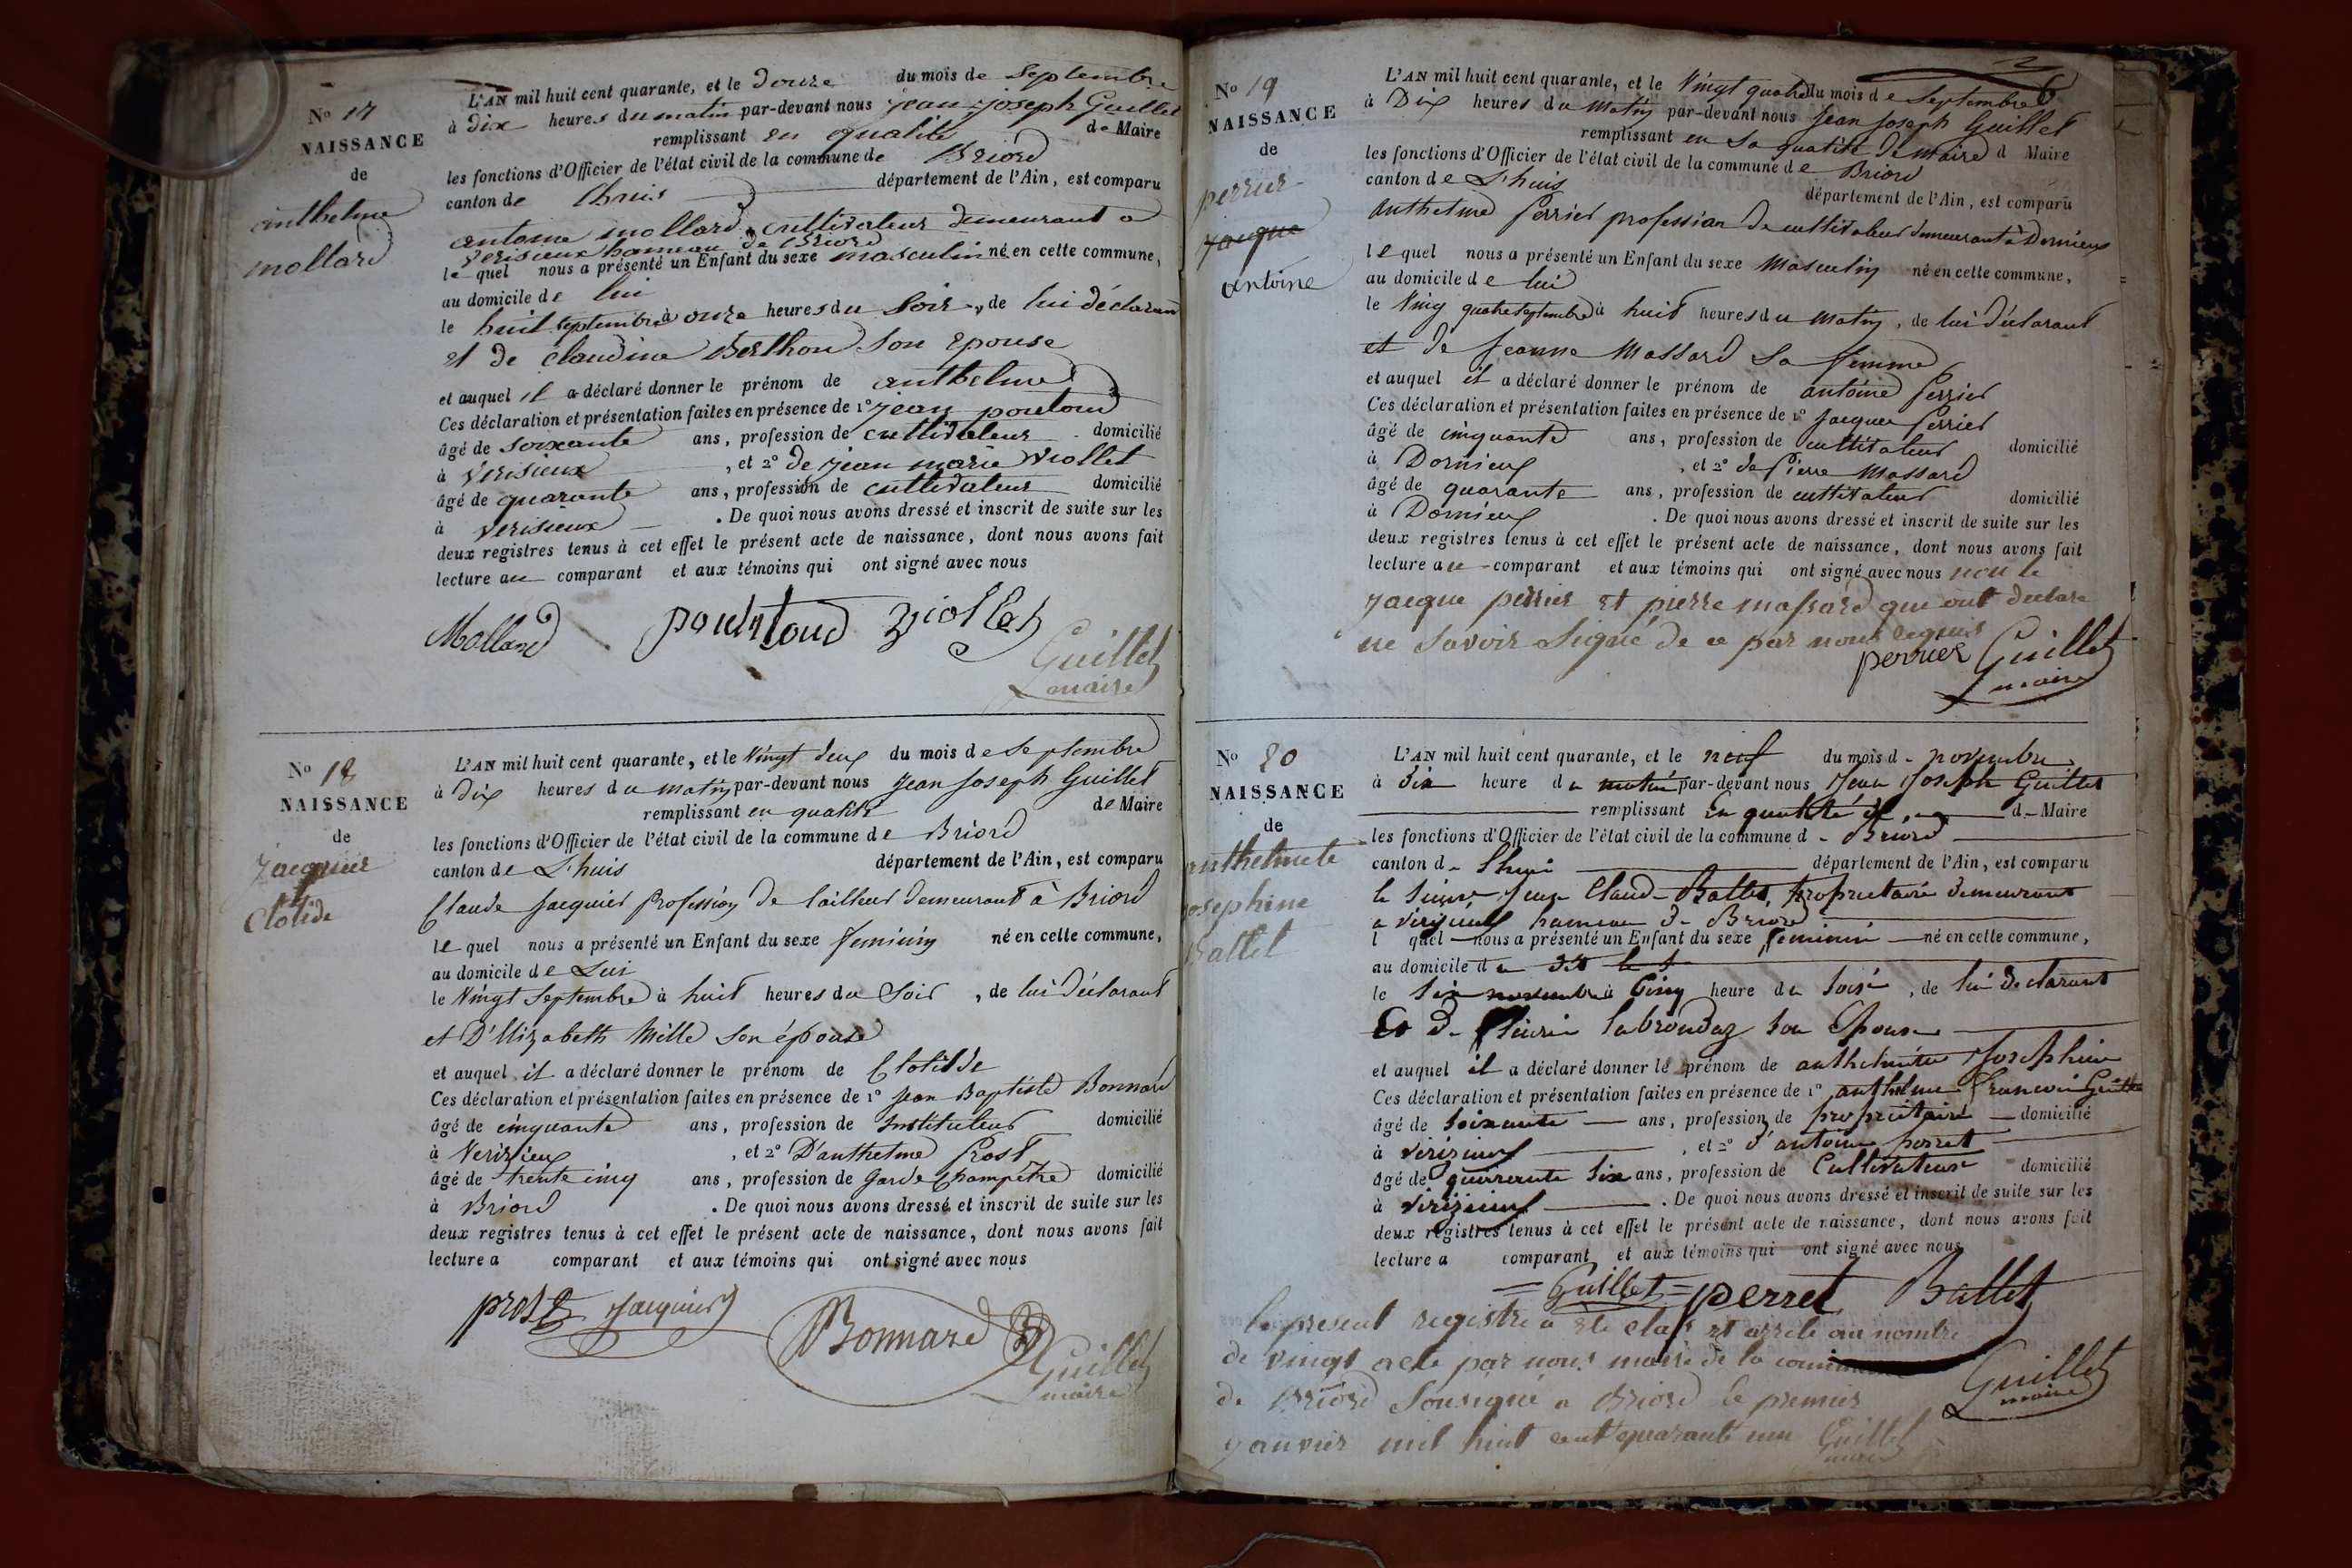 No 17
NAISSANCE
de
anthelme
mollard
L'AN mil huit cent quarante, et le douze du mois de Septembre
à dix heures du matin par-devant nous jean joseph Guillet
remplissant en qualité de Maire
les fonctions d'Officier de l'état civil de la commune de Briord
canton de lhuis département de l'Ain, est comparu
antoine mollard cultivateur demeurant a
verisieux hameau de Briord
le quel nous a présenté un Enfant du sexe masculin né en cette commune,
au domicile de lui
le huit septembre à onze heures du Soir, de lui déclarant
et de claudine Berthon Son Epouse
et auquel il a déclaré donner le prénom de anthelme
Ces déclaration et présentation faites en présence de 1° jean poutoud
âgé de soixante ans, profession de cultivateur domicilié
à verisieux, et 2° de jean marie viollet
âgé de quarante ans, profession de cultivateur domicilié
à verisieux . De quoi nous avons dressé et inscrit de suite sur les
deux registres tenus à cet effet le présent acte de naissance, dont nous avons fait
lecture au comparant et aux témoins qui ont signé avec nous
Mollard viollet
Guillet
maire
No 18
NAISSANCE
de
jacquier
Clotide
L'AN mil huit cent quarante, et le Vingt deux du mois de Septembre
à dix heures du matin par-devant nous jean joseph Guillet
remplissant en qualité de Maire
les fonctions d'Officier de l'état civil de la commune de Briord
canton de L'huis département de l'Ain, est comparu
Claude jacquier profession de tailleur demeurant à Briord
le quel nous a présenté un Enfant du sexe feminin né en cette commune,
au domicile de Lui
le Vingt Septembre à huit heures du Soir, de lui déclarant
et D'Elizabeth Mille son épouse
et auquel il a déclaré donner le prénom de Clotilde
Ces déclaration et présentation faites en présence de 1° jean Baptiste Bonnard
âgé de cinquante ans, profession de instituteur domicilié
à Verizieux, et 2° D'anthelme Prost
âgé de trente cinq ans, profession de Garde Champêtre domicilié
à Briord . De quoi nous avons dressé et inscrit de suite sur les
deux registres tenus à cet effet le présent acte de naissance, dont nous avons fait
lecture a comparant et aux témoins qui ont signé avec nous
prost jacquier
Bonnard
Guillet
maire
No 19
NAISSANCE
de
perrier
jacque
antoine
L'AN mil huit cent quarante, et le Vingt quatre du mois de Septembre
à Dix heures du matin par-devant nous Jean Joseph Guillet
remplissant en Sa qualité de maire d Maire
les fonctions d'Officier de l'état civil de la commune de Briord
canton de L'huis département de l'Ain, est comparu
Anthelme Perrier profession de cultivateur demeurant à Dornieux
le quel nous a présenté un Enfant du sexe Masculin né en cette commune,
au domicile de lui
le Ving quatre Septembre à huit heures du Matin, de lui déclarant
et de Jeanne Massard Sa femme
et auquel il a déclaré donner le prénom de antoine Perrier
Ces déclaration et présentation faites en présence de 1° Jacques Perrier
âgé de cinquante ans, profession de cultivateur domicilié
à Dornieux, et 2° de Pierre Massard
âgé de quarante ans, profession de cultivateur domicilié
à Dornieux . De quoi nous avons dressé et inscrit de suite sur les
deux registres tenus à cet effet le présent acte de naissance, dont nous avons fait
lecture au comparant et aux témoins qui ont signé avec nous non le
jacque perrier et pierre massard que ont declare
ne savoir Signé de ce par nous requis
perrier Guillet
maire
No 20
NAISSANCE
de
anthelmete
josephine
Ballet
L'AN mil huit cent quarante, et le neuf du mois d novembre
à dix heure du matin par-devant nous Jean Joseph Guillet
remplissant En qualité d Maire
les fonctions d'Officier de l'état civil de la commune d Briord
canton d Lhuis département de l'Ain, est comparu
le Sieur Claude Ballet, Propriétaire demeurant
a Verizieux hameau de Briord
l quel nous a présenté un Enfant du sexe feminin né en cette commune,
au domicile d
le Six novembre à Cinq heure du Soir, de lui déclarant
Et de labrondaz Son Epouse
et auquel il a déclaré donner le prénom de anthelmete Josephine
Ces déclaration et présentation faites en présence de 1° anthelme françois Guillet
âgé de Soixante ans, profession de propriétaire domicilié
à Verizieux, et 2° d'antoine perret
âgé de quarante Six ans, profession de Cultivateur domicilié
à Verizieux . De quoi nous avons dressé et inscrit de suite sur les
deux registres tenus à cet effet le présent acte de naissance, dont nous avons fait
lecture a comparant et aux témoins qui ont signé avec nous
Guillet perret Ballet
le present registre a été clos et arreté au nombre
de vingt acte par nous maire de la commune
de Briord Sousigné a Briord le premier
janvier mil huit cent quarante un Guillet
maire
Guillet
maire